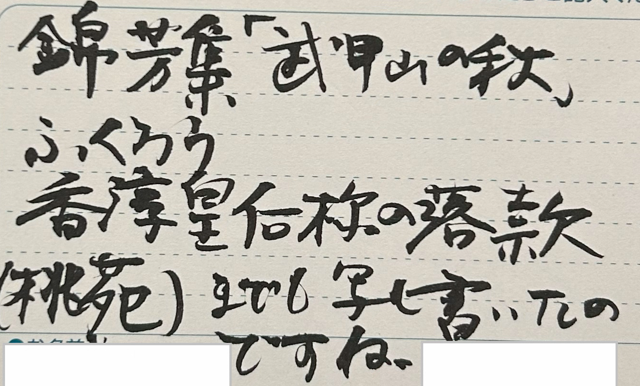 錦芳集「武甲山の秋」
ふくろう
香淳皇后様の落款
(桃苑)までも写し書いたの
ですね。